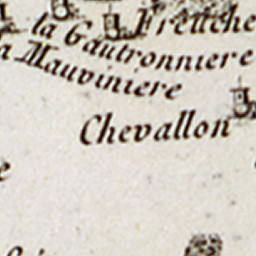 Freuche
la Gautronniere
a Mauviniere
Chevallon